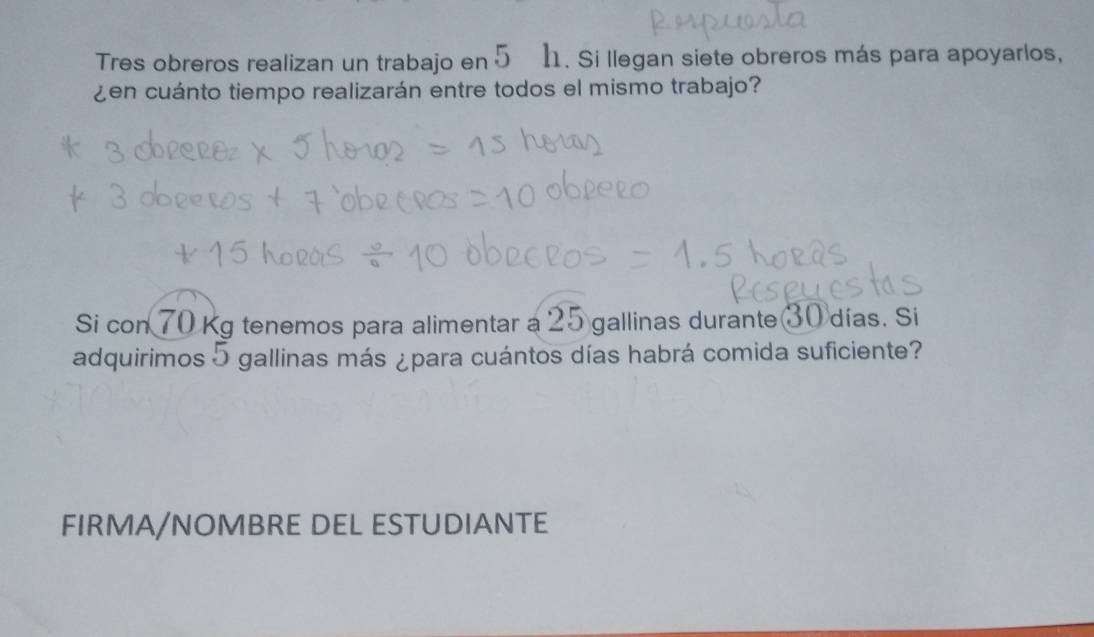 Respuesta
Tres obreros realizan un trabajo en 5 h. Si llegan siete obreros más para apoyarlos,
¿en cuánto tiempo realizarán entre todos el mismo trabajo?
* 3 obreros x 5 horas = 15 horas
* 3 obreros + 7 obreros = 10 obrero
+ 15 horas ÷ 10 obreros = 1.5 horas
Respuestas
Si con 70 Kg tenemos para alimentar a 25 gallinas durante 30 días. Si
adquirimos 5 gallinas más ¿para cuántos días habrá comida suficiente?
FIRMA/NOMBRE DEL ESTUDIANTE